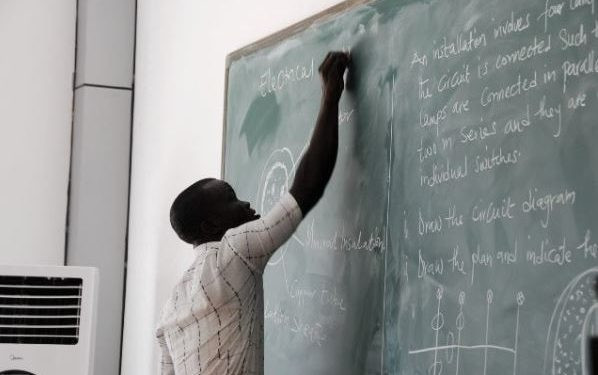 Electrical
Mineral insulation
Copper
An installation involves four
the Circuit is connected Such
Lamps are Connected in parall
two in Series and they are
individual Switches.
i Draw the Circuit diagram
i Draw the plan and indicate the